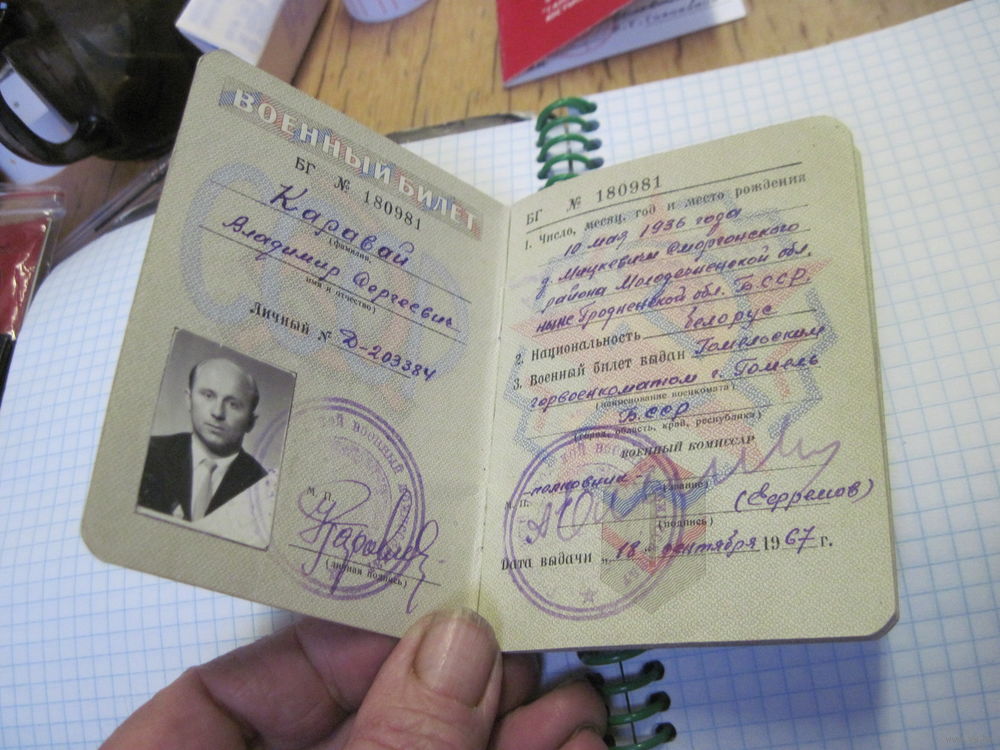 ВОЕННЫЙ БИЛЕТ
БГ № 180981
Каравай
(фамилия,
Владимир Сергеевич
имя и отчество)
Личный № Д-203384
М. П.
(личная подпись)
БГ № 180981
1. Число, месяц, год и место рождения
10 мая 1936 года
д. Мицкевичи Сморгонского
района Молодечненской обл.
ныне Гродненской обл. БССР.
2. Национальность белорус
3. Военный билет выдан Гомельским
горвоенкоматом г. Гомель
(наименование военкомата)
БССР
(город, область, край, республика)
ВОЕННЫЙ КОМИССАР
полковник -
М. П. (звание)
(Ефремов)
(подпись)
Дата выдачи „18" сентября 1967 г.